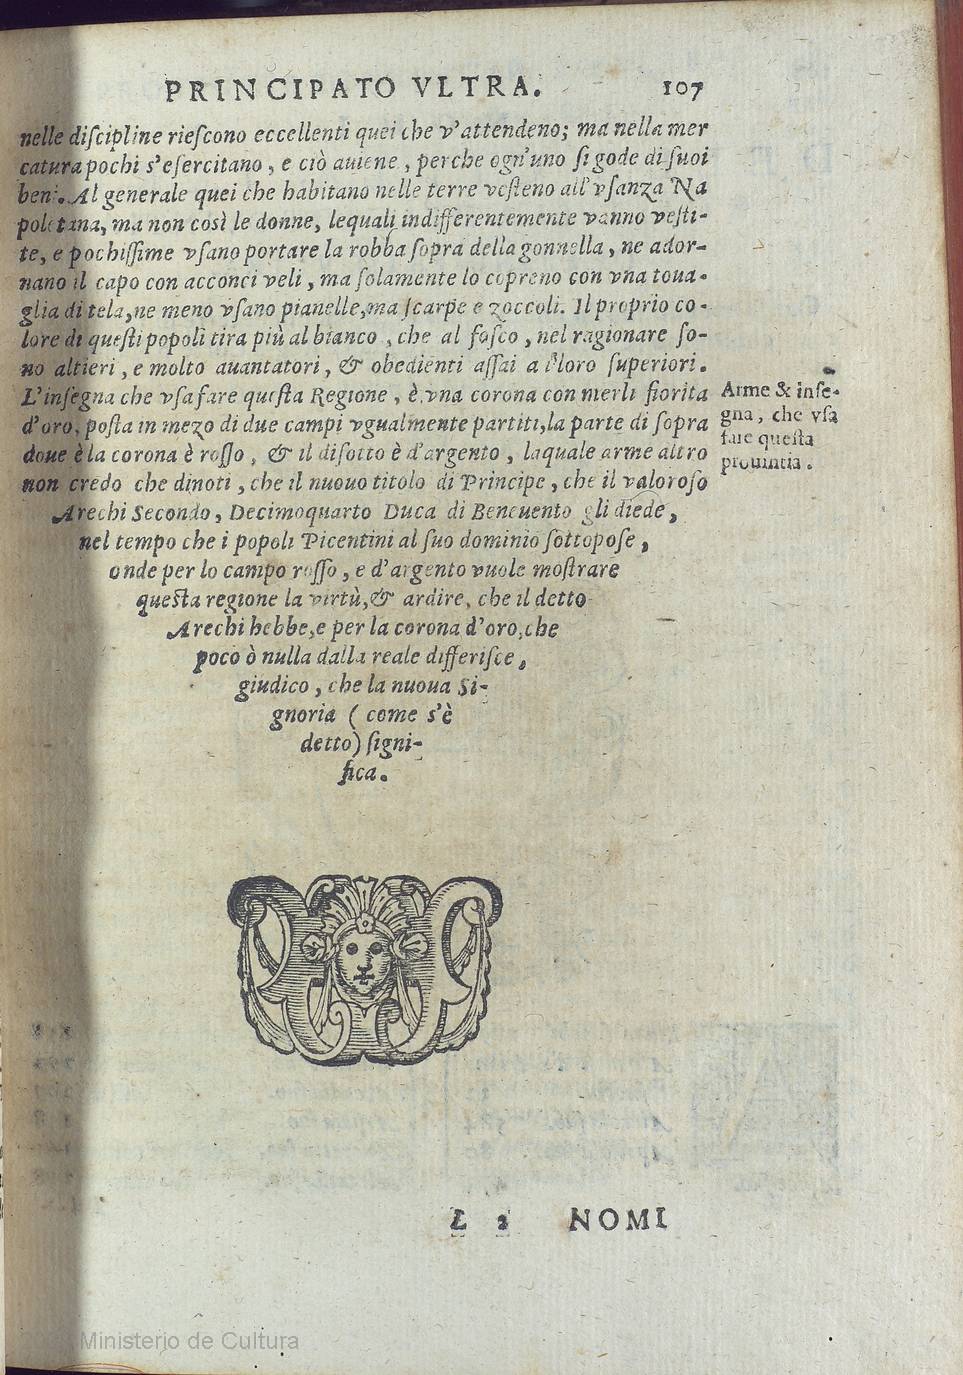 PRINCIPATO VLTRA. 107
nelle diſcipline rieſcono eccellenti quei che v'attendeno; ma nella mer
catura pochi s'eſercitano, e ciò auiene, perche ogn'uno ſi gode di ſuoi
beni. Al generale quei che habitano nelle terre veſteno all'vſanza Na
poletana, ma non così le donne, lequali indifferentemente vanno veſti-
te, e pochiſſime vſano portare la robba ſopra della gonnella, ne ador-
nano il capo con acconci veli, ma ſolamente lo copreno con vna toua-
glia di tela, ne meno vſano pianelle, ma ſcarpe e zoccoli. Il proprio co-
lore di queſti popoli tira più al bianco, che al foſco, nel ragionare ſo-
no altieri, e molto auantatori, & obedienti aſſai a i loro ſuperiori.
L'inſegna che vſa fare queſta Regione, è vna corona con merli fiorita
d'oro, poſta in mezo di due campi vgualmente partiti, la parte di ſopra
doue è la corona è roſſo, & il diſotto è d'argento, laquale arme altro
non credo che dinoti, che il nuouo titolo di Principe, che il valoroſo
Arechi Secondo, Decimoquarto Duca di Beneuento gli diede,
nel tempo che i popoli Picentini al ſuo dominio ſottopoſe,
onde per lo campo roſſo, e d'argento vuole moſtrare
queſta regione la virtù, & ardire, che il detto
Arechi hebbe, e per la corona d'oro, che
poco ò nulla dalla reale differiſce,
giudico, che la nuoua Si-
gnoria ( come s'è
detto) ſigni-
fica.
Arme & inſe-
gna, che vſa
fare queſta
prouincia.
L 2 NOMI
Ministerio de Cultura